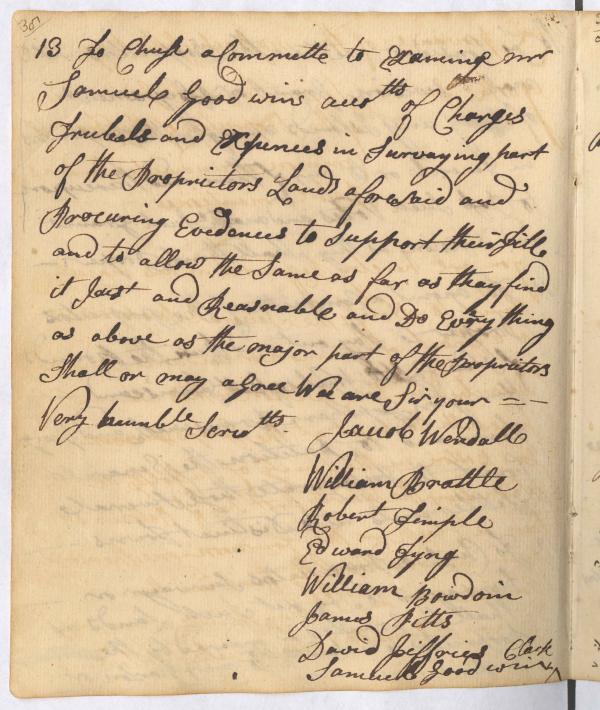 13 To Chuse a Committe to Examine mr
Samuel Goodwins accotts of Charges
Trubels and Expences in Surveying part
of the Proprietors Lands aforesaid and
Procuring Evedences to Support their Title
and to allow the Same as far as they find
it Just and Reasnable and Do Every thing
as above as the major part of the Proprietors
Shall or may agree We are Sir your =
Very humble Servtts
Jacob Wendall
William Brattle
Robert Temple
Edward Tyng
William Bowdoin
James Pitts
David Jeffries Clark
Samuel Goodwin